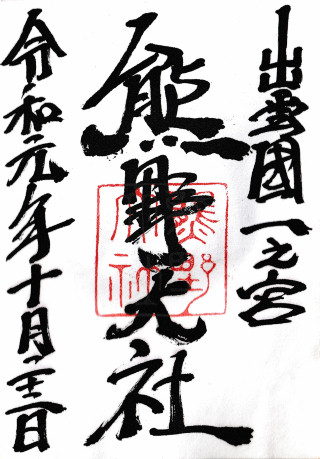 出雲國一之宮
熊野大社
令和元年十月日
熊野
大社